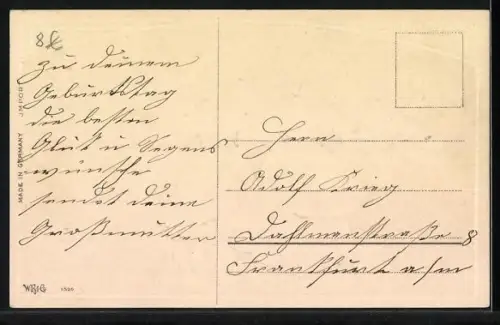 8
zu deinem
Geburtstag
die besten
Glük u Segens
wünsche
sendet deine
Großmutter
MADE IN GERMANY IMPORT
W.B.G.
Herrn
Adolf Krieg
Dahlmannstraße 8
Frankfurt a/m